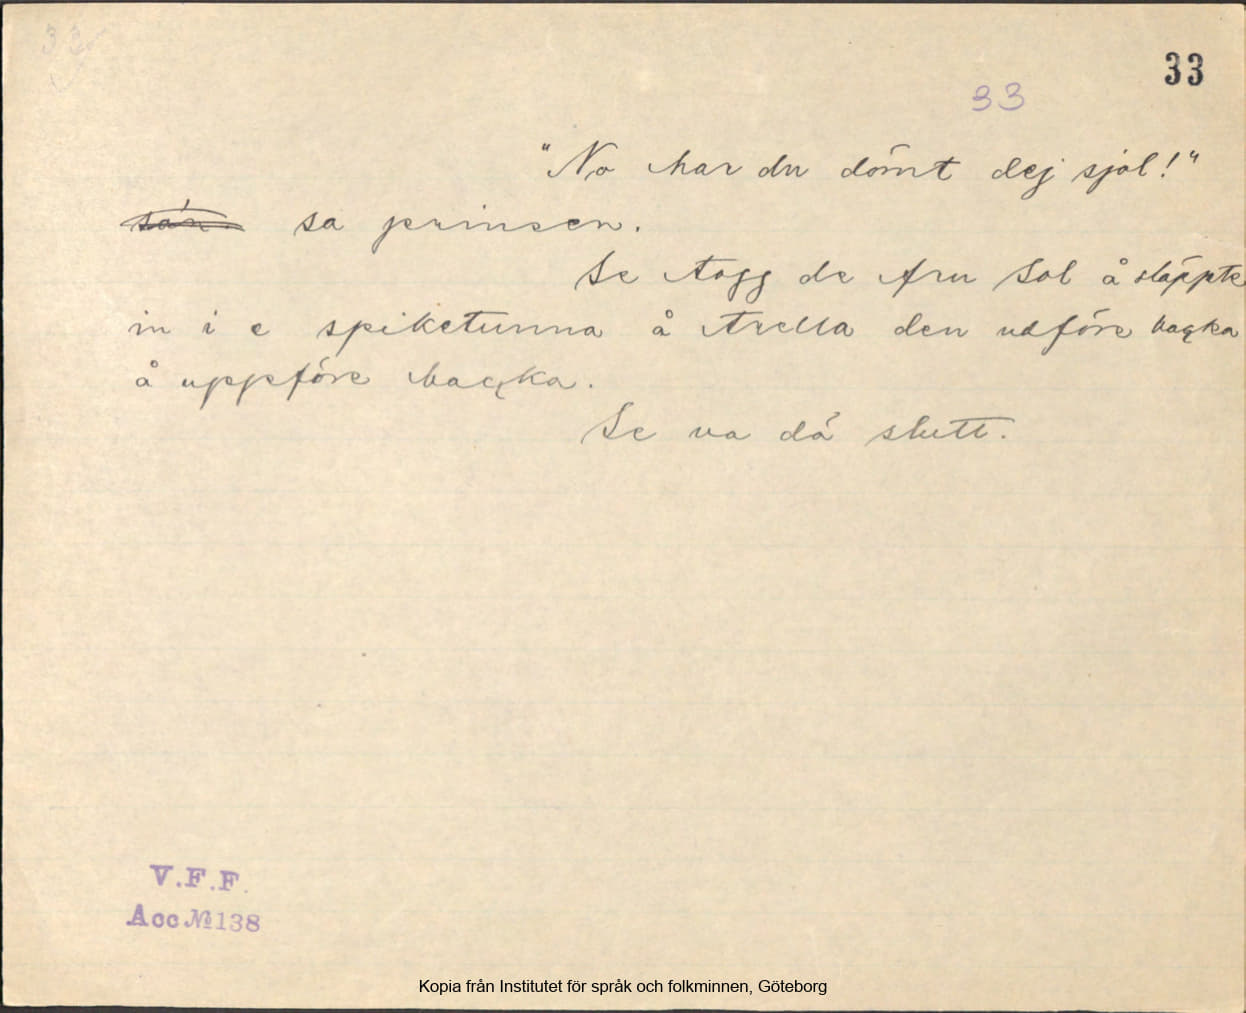 33
33
"No har du dömt dej sjal!"
sán sa prinsen.
Se togg de fru Sol å släppte
in i e spiketunna å trella den udföre backa
å uppföre backa.
Se va då slutt.
V.F.F.
Acc № 138
Kopia från Institutet för språk och folkminnen, Göteborg